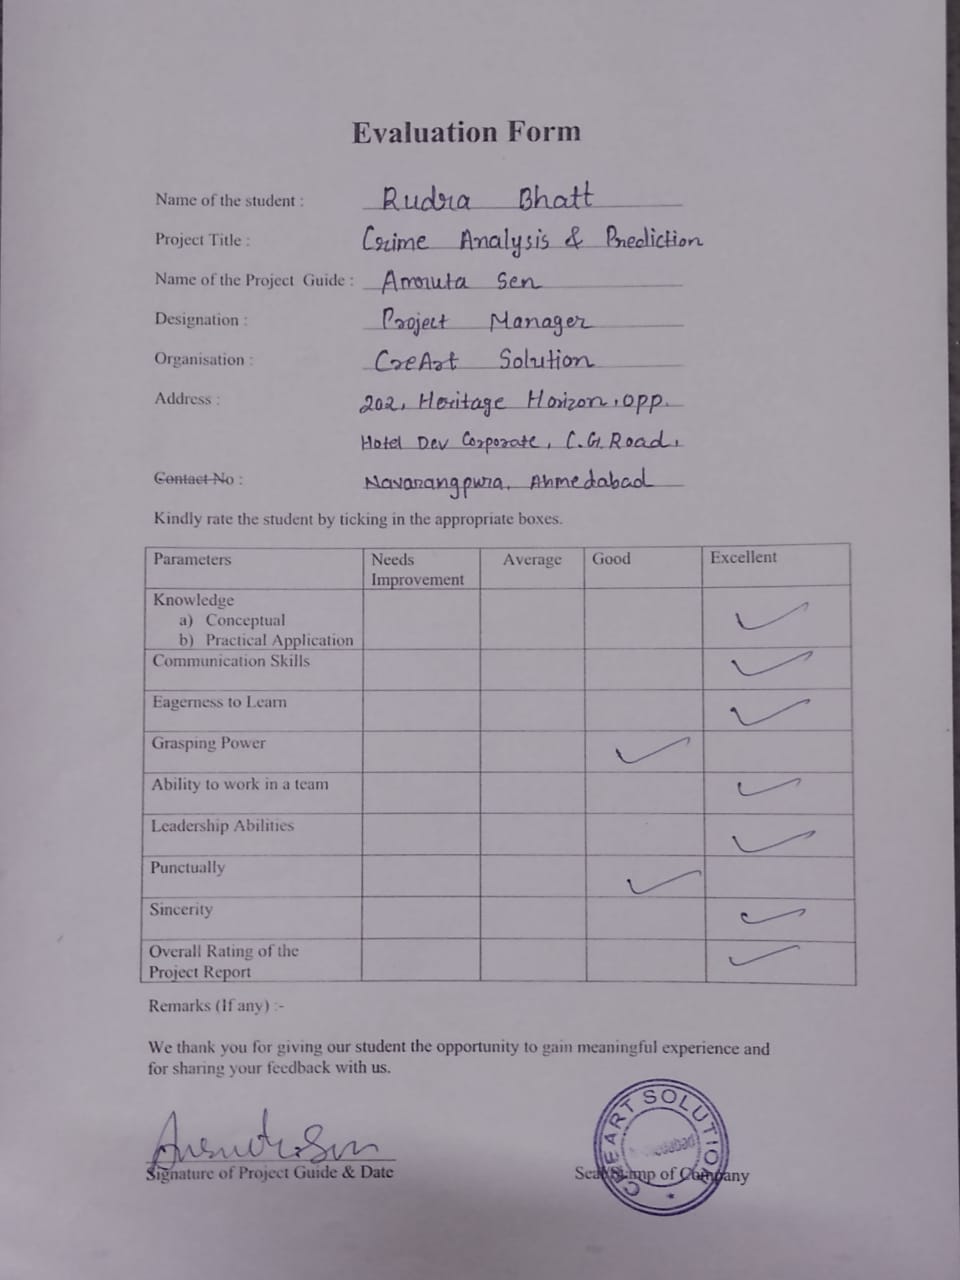 Evaluation Form
Name of the student : Rudra Bhatt
Project Title : Crime Analysis & Prediction
Name of the Project Guide : Amruta Sen
Designation : Project Manager
Organisation : CreArt Solution
Address : 202, Heritage Horizon, opp.
Hotel Dev Corporate, C.G. Road,
Contact No : Navarangpura, Ahmedabad
Kindly rate the student by ticking in the appropriate boxes.
Parameters Needs Average Good Excellent
Improvement
Knowledge
a) Conceptual
b) Practical Application
Communication Skills
Eagerness to Learn
Grasping Power
Ability to work in a team
Leadership Abilities
Punctually
Sincerity
Overall Rating of the
Project Report
Remarks (If any) :-
We thank you for giving our student the opportunity to gain meaningful experience and
for sharing your feedback with us.
Signature of Project Guide & Date
CREART SOLUTION
Seal/Stamp of Company